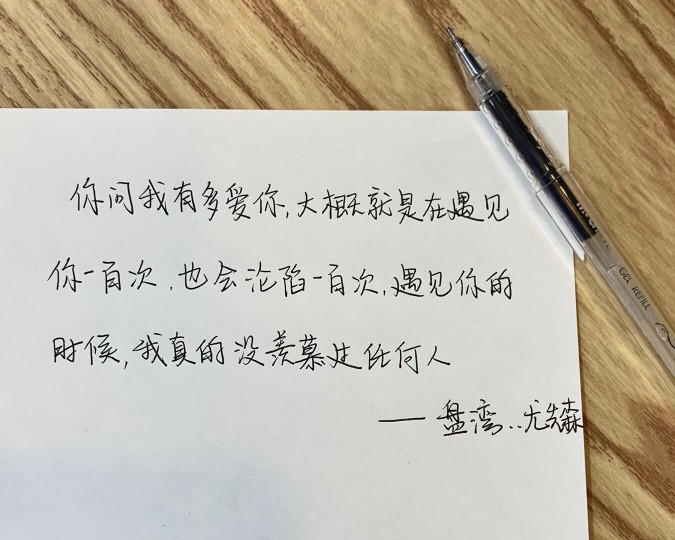 你问我有多爱你,大概就是在遇见
你一百次,也会沦陷一百次,遇见你的
时候,我真的没羡慕过任何人
—— 盘湾..尤先森
GEL REFILL